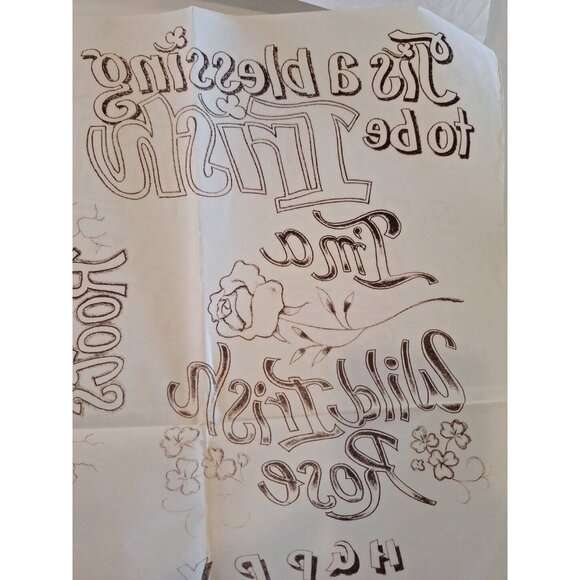 'Tis a blessing
to be
Irish
I'm a
Wild Irish
Rose
Roots
HAPPY